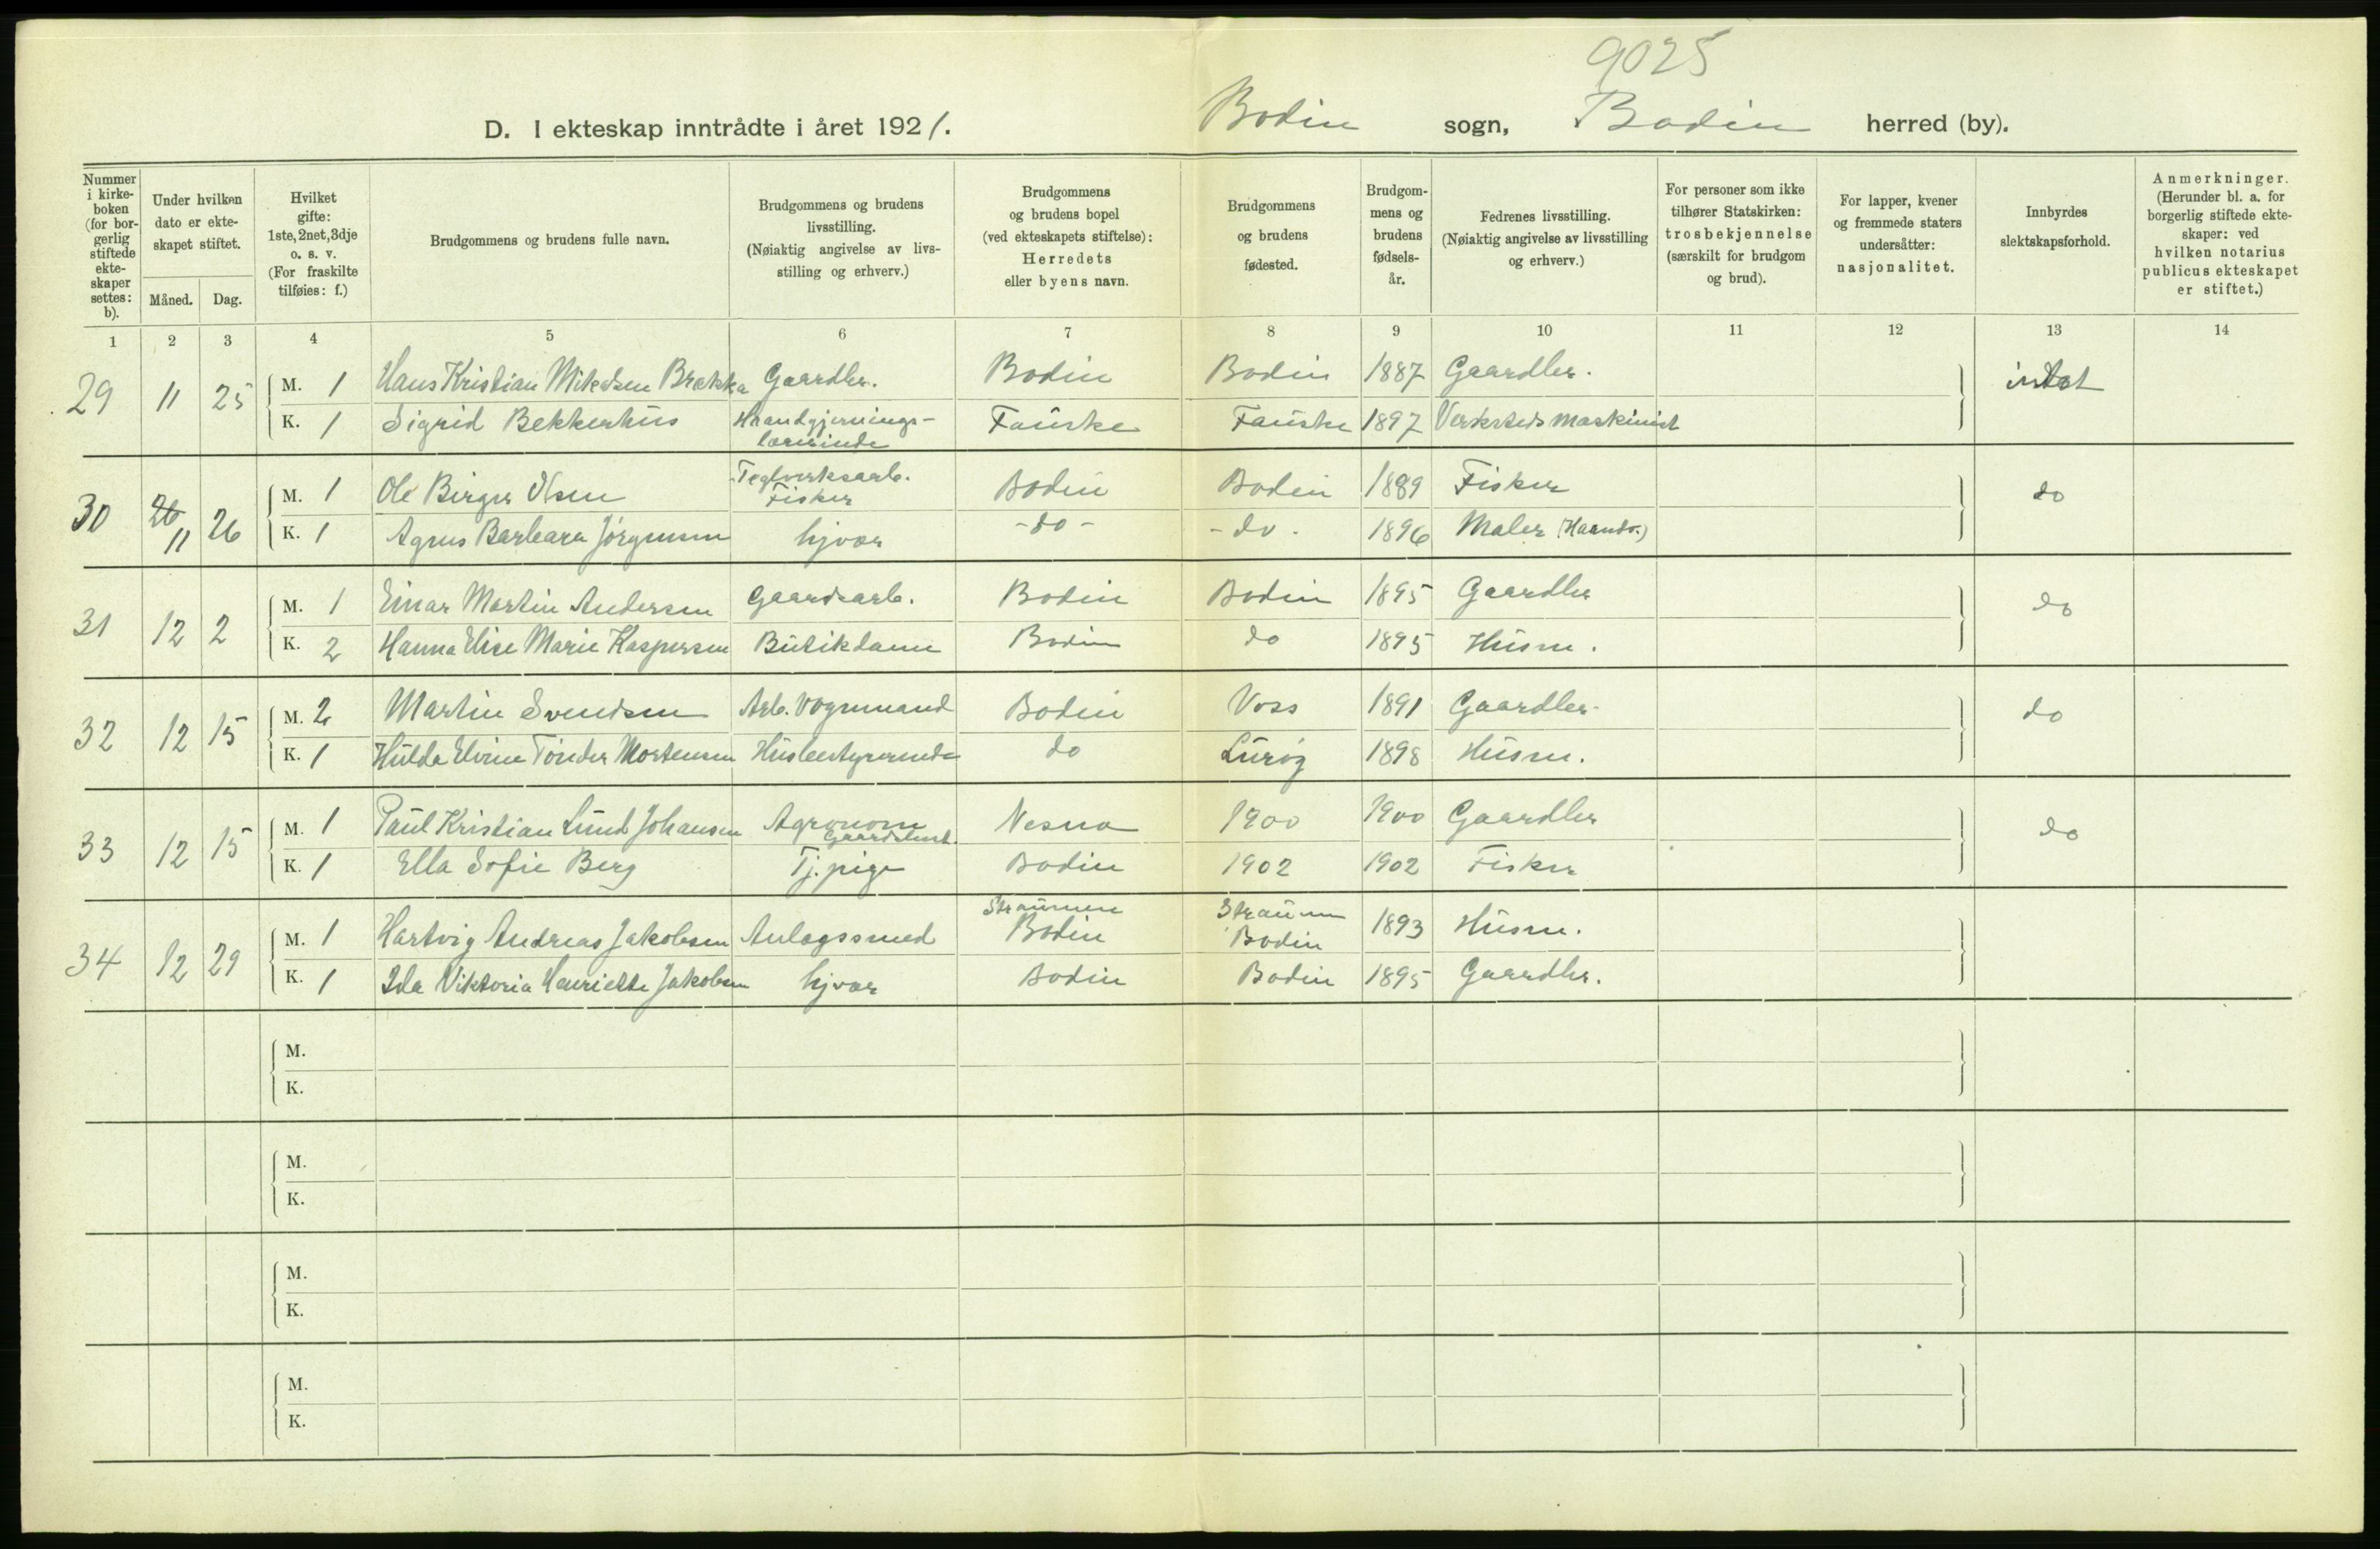 9025
D. I ekteskap inntrådte i året 1921. Bodin sogn, Bodin herred (by).
Nummer i kirkeboken (for borgerlig stiftede ekteskaper settes: b).
Under hvilken dato er ekteskapet stiftet.
Måned. Dag.
Hvilket gifte: 1ste, 2net, 3dje o. s. v. (For fraskilte tilføies: f.)
Brudgommens og brudens fulle navn.
Brudgommens og brudens livsstilling. (Nøiaktig angivelse av livsstilling og erhverv.)
Brudgommens og brudens bopel (ved ekteskapets stiftelse): Herredets eller byens navn.
Brudgommens og brudens fødested.
Brudgommens og brudens fødselsår.
Fedrenes livsstilling. (Nøiaktig angivelse av livsstilling og erhverv.)
For personer som ikke tilhører Statskirken: trosbekjennelse (særskilt for brudgom og brud).
For lapper, kvener og fremmede staters undersåtter: nasjonalitet.
Innbyrdes slektskapsforhold.
Anmerkninger. (Herunder bl. a. for borgerlig stiftede ekteskaper: ved hvilken notarius publicus ekteskapet er stiftet.)
1 2 3 4 5 6 7 8 9 10 11 12 13 14
29 11 25 M. 1 Hans Kristian Mikalsen Brækka Gaardbr. Bodin Bodin 1887 Gaardbr. intet
K. 1 Sigrid Bekkerhus Haandgjernings-lærerinde Fauske Fauske 1897 Verksteds maskinist
30 11 26 M. 1 Ole Birger Olsen Teglverksarb. Fisker Bodin Bodin 1889 Fisker do
K. 1 Agnes Barbara Jørgensen hjvær -do- -do- 1896 Maler (Haandv.)
31 12 2 M. 1 Einar Martin Andersen Gaardsarb. Bodin Bodin 1895 Gaardbr do
K. 2 Hanna Elise Marie Kaspersen Butikdame Bodin do 1895 Husm.
32 12 15 M. 2 Martin Svendsen Arb. Vognmand Bodin Voss 1891 Gaardbr. do
K. 1 Hulda Elvine Tønder Mortensen Husbestyrerinde do Lurøy 1898 Husm.
33 12 15 M. 1 Paul Kristian Lund Johansen Agronom Nesna 1900 1900 Gaardbr do
K. 1 Ella Sofie Berg Tj. pige Bodin 1902 1902 Fisker
34 12 29 M. 1 Hartvig Andreas Jakobsen Anlagssmed Straumen Bodin Straumen Bodin 1893 Husm.
K. 1 Ida Viktoria Henriette Jakobsen hjvær Bodin Bodin 1895 Gaardbr.
M.
K.
M.
K.
M.
K.
M.
K.